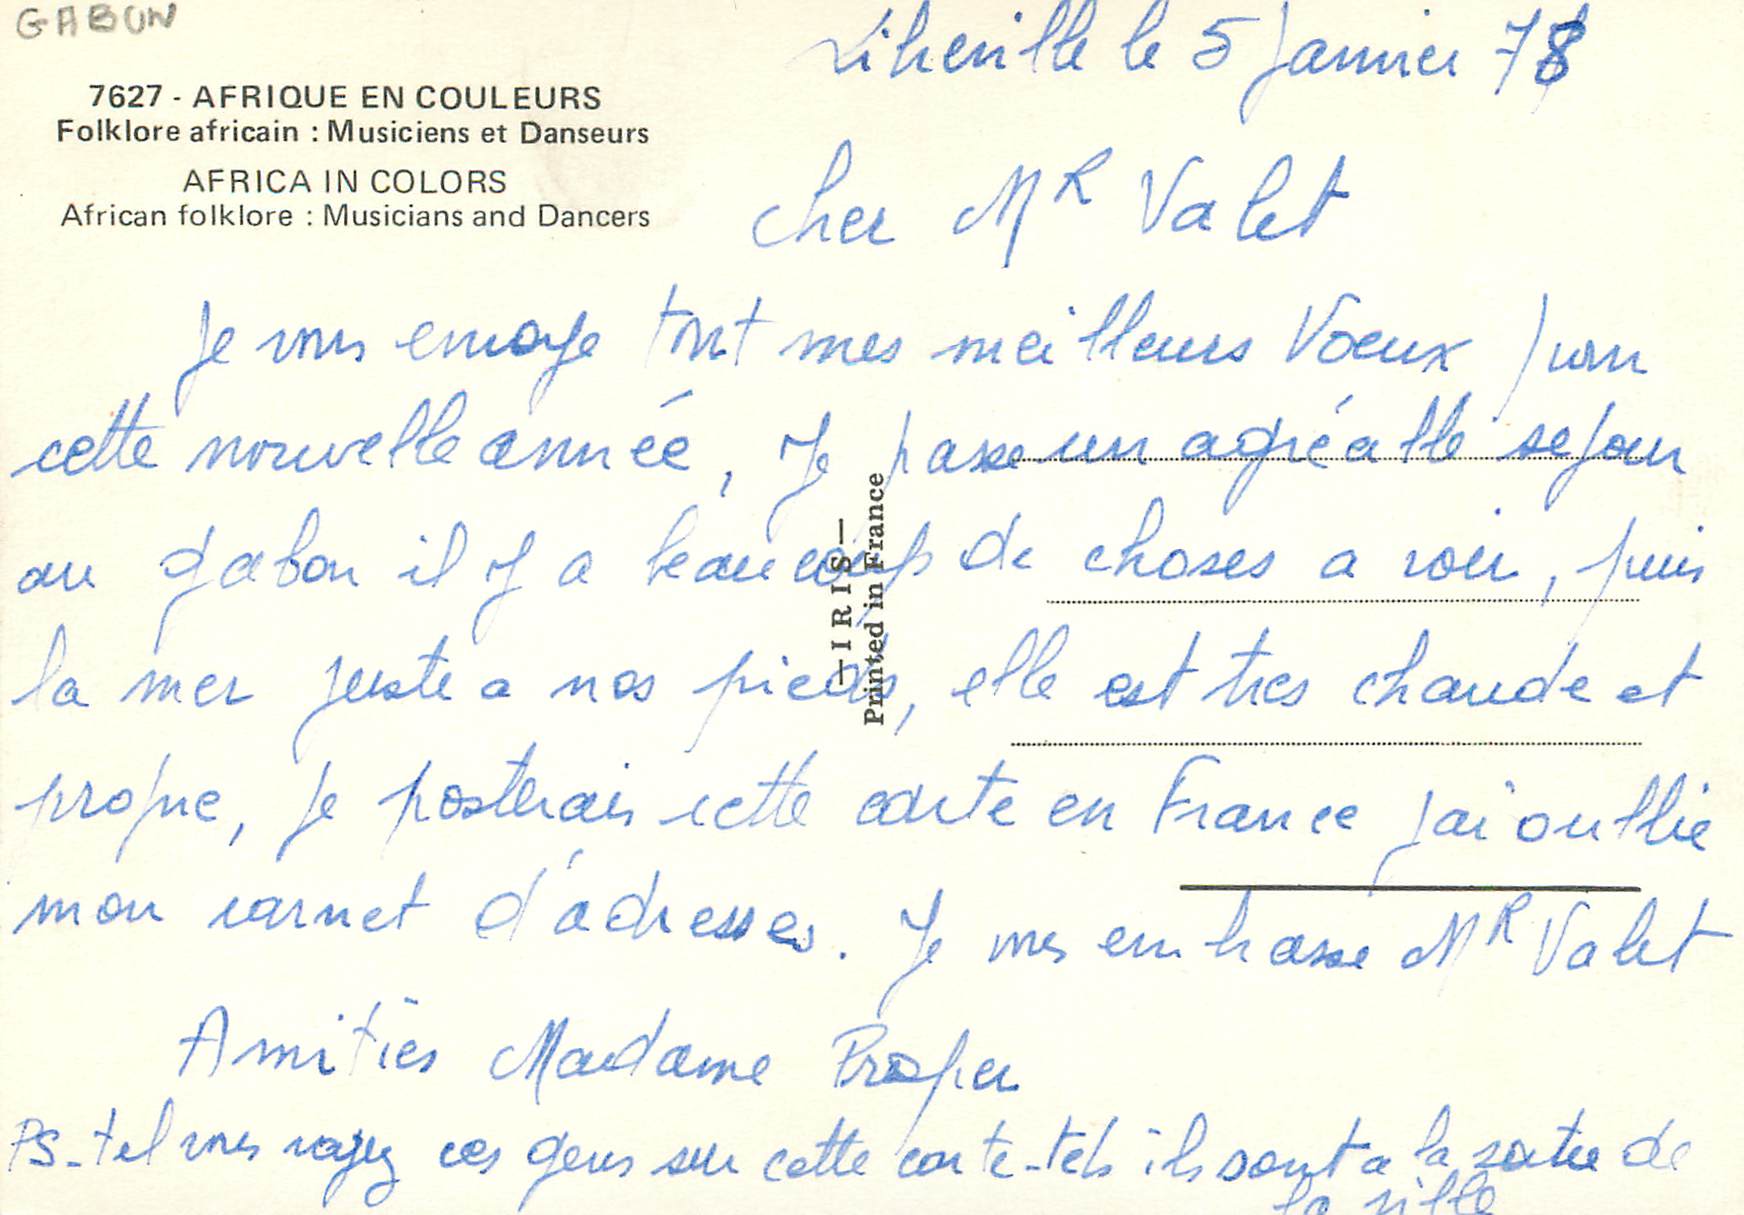 GABON
7627 - AFRIQUE EN COULEURS
Folklore africain : Musiciens et Danseurs
AFRICA IN COLORS
African folklore : Musicians and Dancers
Libreville le 5 Janvier 78
Cher MR Valet
Je vous envoye tout mes meilleurs Voeux pour
cette nouvelle année, Je passe un agréable sejour
au gabon il y a beaucoup de choses a voir, puis
la mer juste a nos pieds, elle est tres chaude et
propre, je posterais cette carte en France j'ai oublie
mon carnet d'adresses. Je vous embrasse MR Valet
Amitiés Madame Prosper
PS_ tel vous voyez ces gens sur cette carte - tels ils sont a la sortie de
la ville
— IRIS —
Printed in France